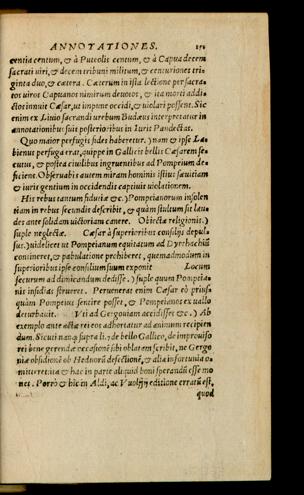 ANNOTATIONES.
centia centum, & à Puteolis centum, & à Capua decem
sacrati uiri, & decem tribuni militum, & centuriones tri-
ginta duo, & cætera. Cæterum in ista lectione per sacra-
tos uiros Capuanos nimirum deuotos, & ita morti addi-
ctos innuit Cæsar, ut impune occidi, & uiolari possent. Sic
enim ex Liuio sacrandi urebum Budæus interpretatur in
annotationibus suis posterioribus in Iuris Pandectas.
Quo maior perfugis fides haberetur. ) nam & ipse La-
bienus perfuga erat, quippe in Gallicis bellis Cæsarem se-
cutus, & postea ciuilibus ingruentibus ad Pompeium de-
ficiens. Obseruabis autem miram hominis istius sæuitiam
& iuris gentium in occidendis captiuis uiolationem.
His rebus tantum fiduciæ &c. ) Pompeianorum insolen
tiam in rebus secundis describit, & quàm stultum sit lau-
des ante solidam uictoriam canere. Obiecta religionis. )
suple neglectæ. Cæsar à superioribus consilijs depul-
sus. ) uidelicet ut Pompeianum equitatum ad Dyrrhachiũ
contineret, & pabulatione prohiberet, quemadmodum in
superioribus ipse consilium suum exponit Locum
securum ad dimicandum dedisse. ) suple quum Pompeia-
nis insidias strueret. Peruenerat enim Cæsar eò prius-
quàm Pompeius sentire posset, & Pompeianos ex uallo
deturbauit. Vti ad Gergouiam accidisset &c. ) Ab
exemplo ante actæ rei eos adhortatur ad animum recipien
dum. Sicuti nanq; supra li. 7 de bello Gallico, de improuiso
rei bene gerendæ occasionẽ sibi oblatam scribit, ne Gergo
niæ obsidionẽ ob Heduorũ defectionẽ, & alia infortunia o-
mitteret: ita & hac in parte aliquid boni sperandũ esse mo
net. Porrò & hic in Aldi, ac Vuolfij editione erratũ est,
quod